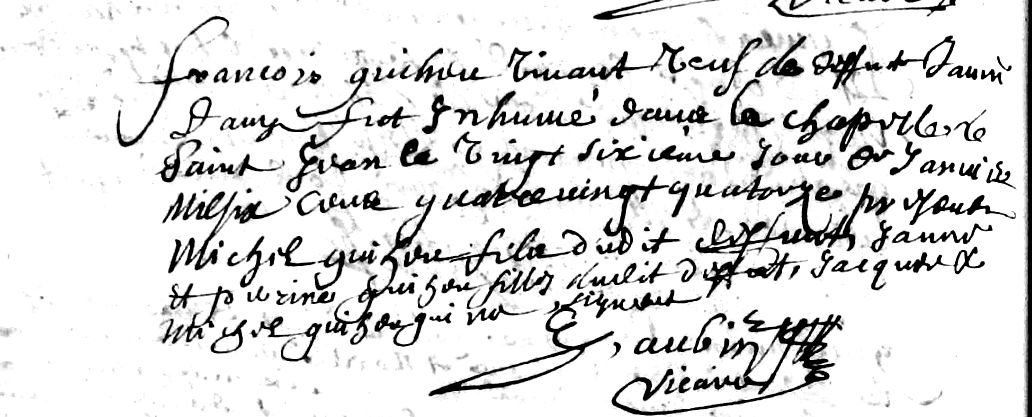 francois guiheu vivant veuf de deffunte Janne
Dauy fut Inhumé dans la chapelle de
Saint Jean le vingt sixième jour de Janvier
Mil six cens quatre vingt quatorze presens
Michel guiheu fils dudit deffunt, Janne
et perrine guiheu filles dudit deffunt, Jacques &
Michel guiheu qui ne signent
aubin
vicaire